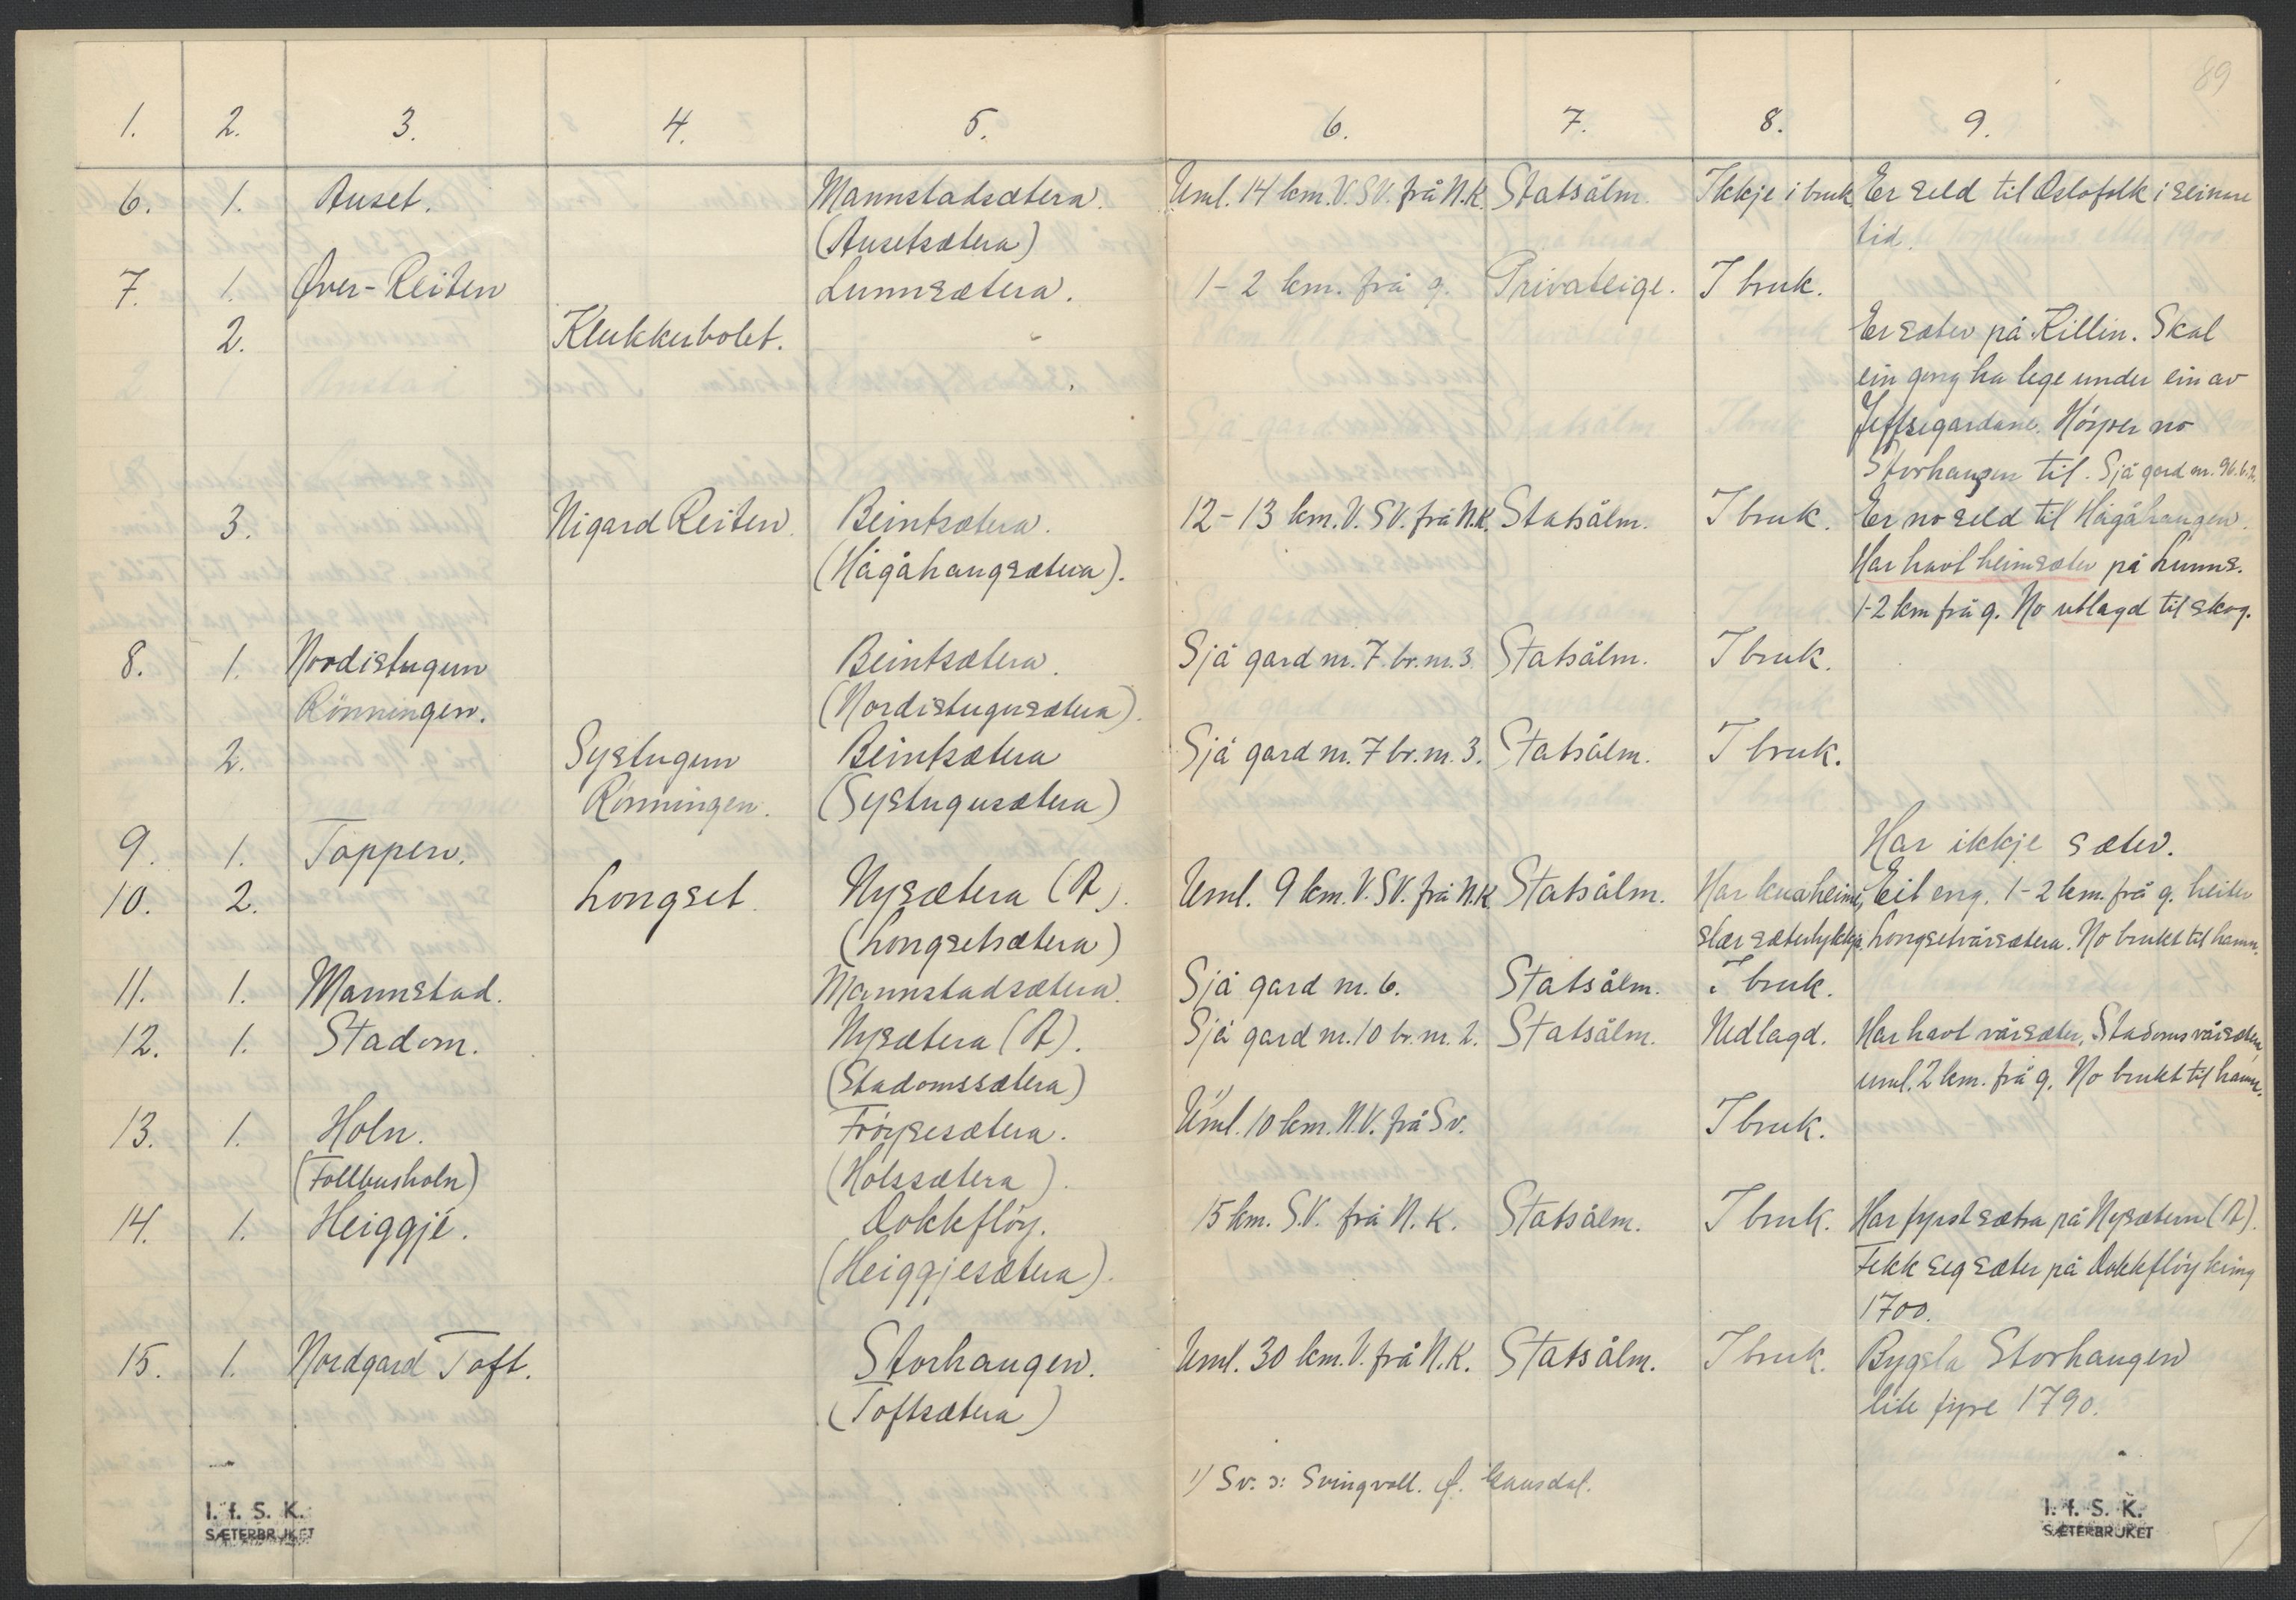 89
1. 2. 3. 4. 5. 6. 7. 8. 9.
6. 1. Auset. Mannstadsætera. Uml. 14 km. V. SV. frå N.K. Statsålm. Ikkje i bruk. Er seld til Oslofolk i seinare
(Ausetsætera) tid.
7. 1. Øver-Reiten Lunnsætera. 1-2 km. frå g. Privateige. I bruk.
2. Klukkerbolet. Er sæter på Killin. Skal
ein gong ha lege under ein av
Jeffsegardane. Høyrer no
Storhaugen til. Sjå gard nr. 96. b. 2.
3. Nigard Reiten. Beintsætera. 12-13 km. V. SV. frå N.K. Statsålm. I bruk. Er no seld til Hågåhaugen.
(Hågåhaugsætera). Har havt heimsæter på Lunns.
1-2 km frå g. No utlagd til skog.
8. 1. Nordistugun Beintsætera. Sjå gard nr. 7. br. nr. 3. Statsålm. I bruk.
Rønningen. (Nordistugusætera).
2. Systugun Beintsætera Sjå gard nr. 7 br. nr. 3. Statsålm. I bruk.
Rønningen. (Systugusætera)
9. 1. Toppen. Har ikkje sæter.
10. 2. Longset. Nysætera (A). Uml. 9 km. V. SV. frå N.K. Statsålm. Har kua heime, Eit eng. 1-2 km. frå g. heiter
(Longsetsætera) slær sæterlykkja. Longsetvårsætera. No brukt til hamn.
11. 1. Mannstad. Mannstadsætera. Sjå gard nr. 6. Statsålm. i bruk.
12. 1. Stadom. Nysætera (A). Sjå gard nr. 10 br. nr. 2. Statsålm. Nedlagd. Har havt vårsæter, Stadomsvårsætera,
(Stadomssætera) uml. 2 km. frå g. No brukt til hamn.
13. 1. Holn. Frøysesætera. Uml. 10 km. N.V. frå Sv. 1) I bruk.
(Follbusholn) (Holssætera).
14. 1. Heiggje. Dokkfløy. 15 km. S.V. frå N.K. Statsålm. I bruk. Har fyrst sætra på Nysætern (A).
(Heiggjesætera). Fekk seg sæter på Dokkfløy kring
1700.
15. 1. Nordgard Toft. Storhaugen. Uml. 30 km. V. frå N.K. Statsålm. I bruk. Bygsla Storhaugen
(Toftsætera) lite fyre 1790.
1) Sv. ɔ: Svingvoll. Ø. Gausdal.
I. f. S. K.
SÆTERBRUKET
I. f. S. K.
SÆTERBRUKET